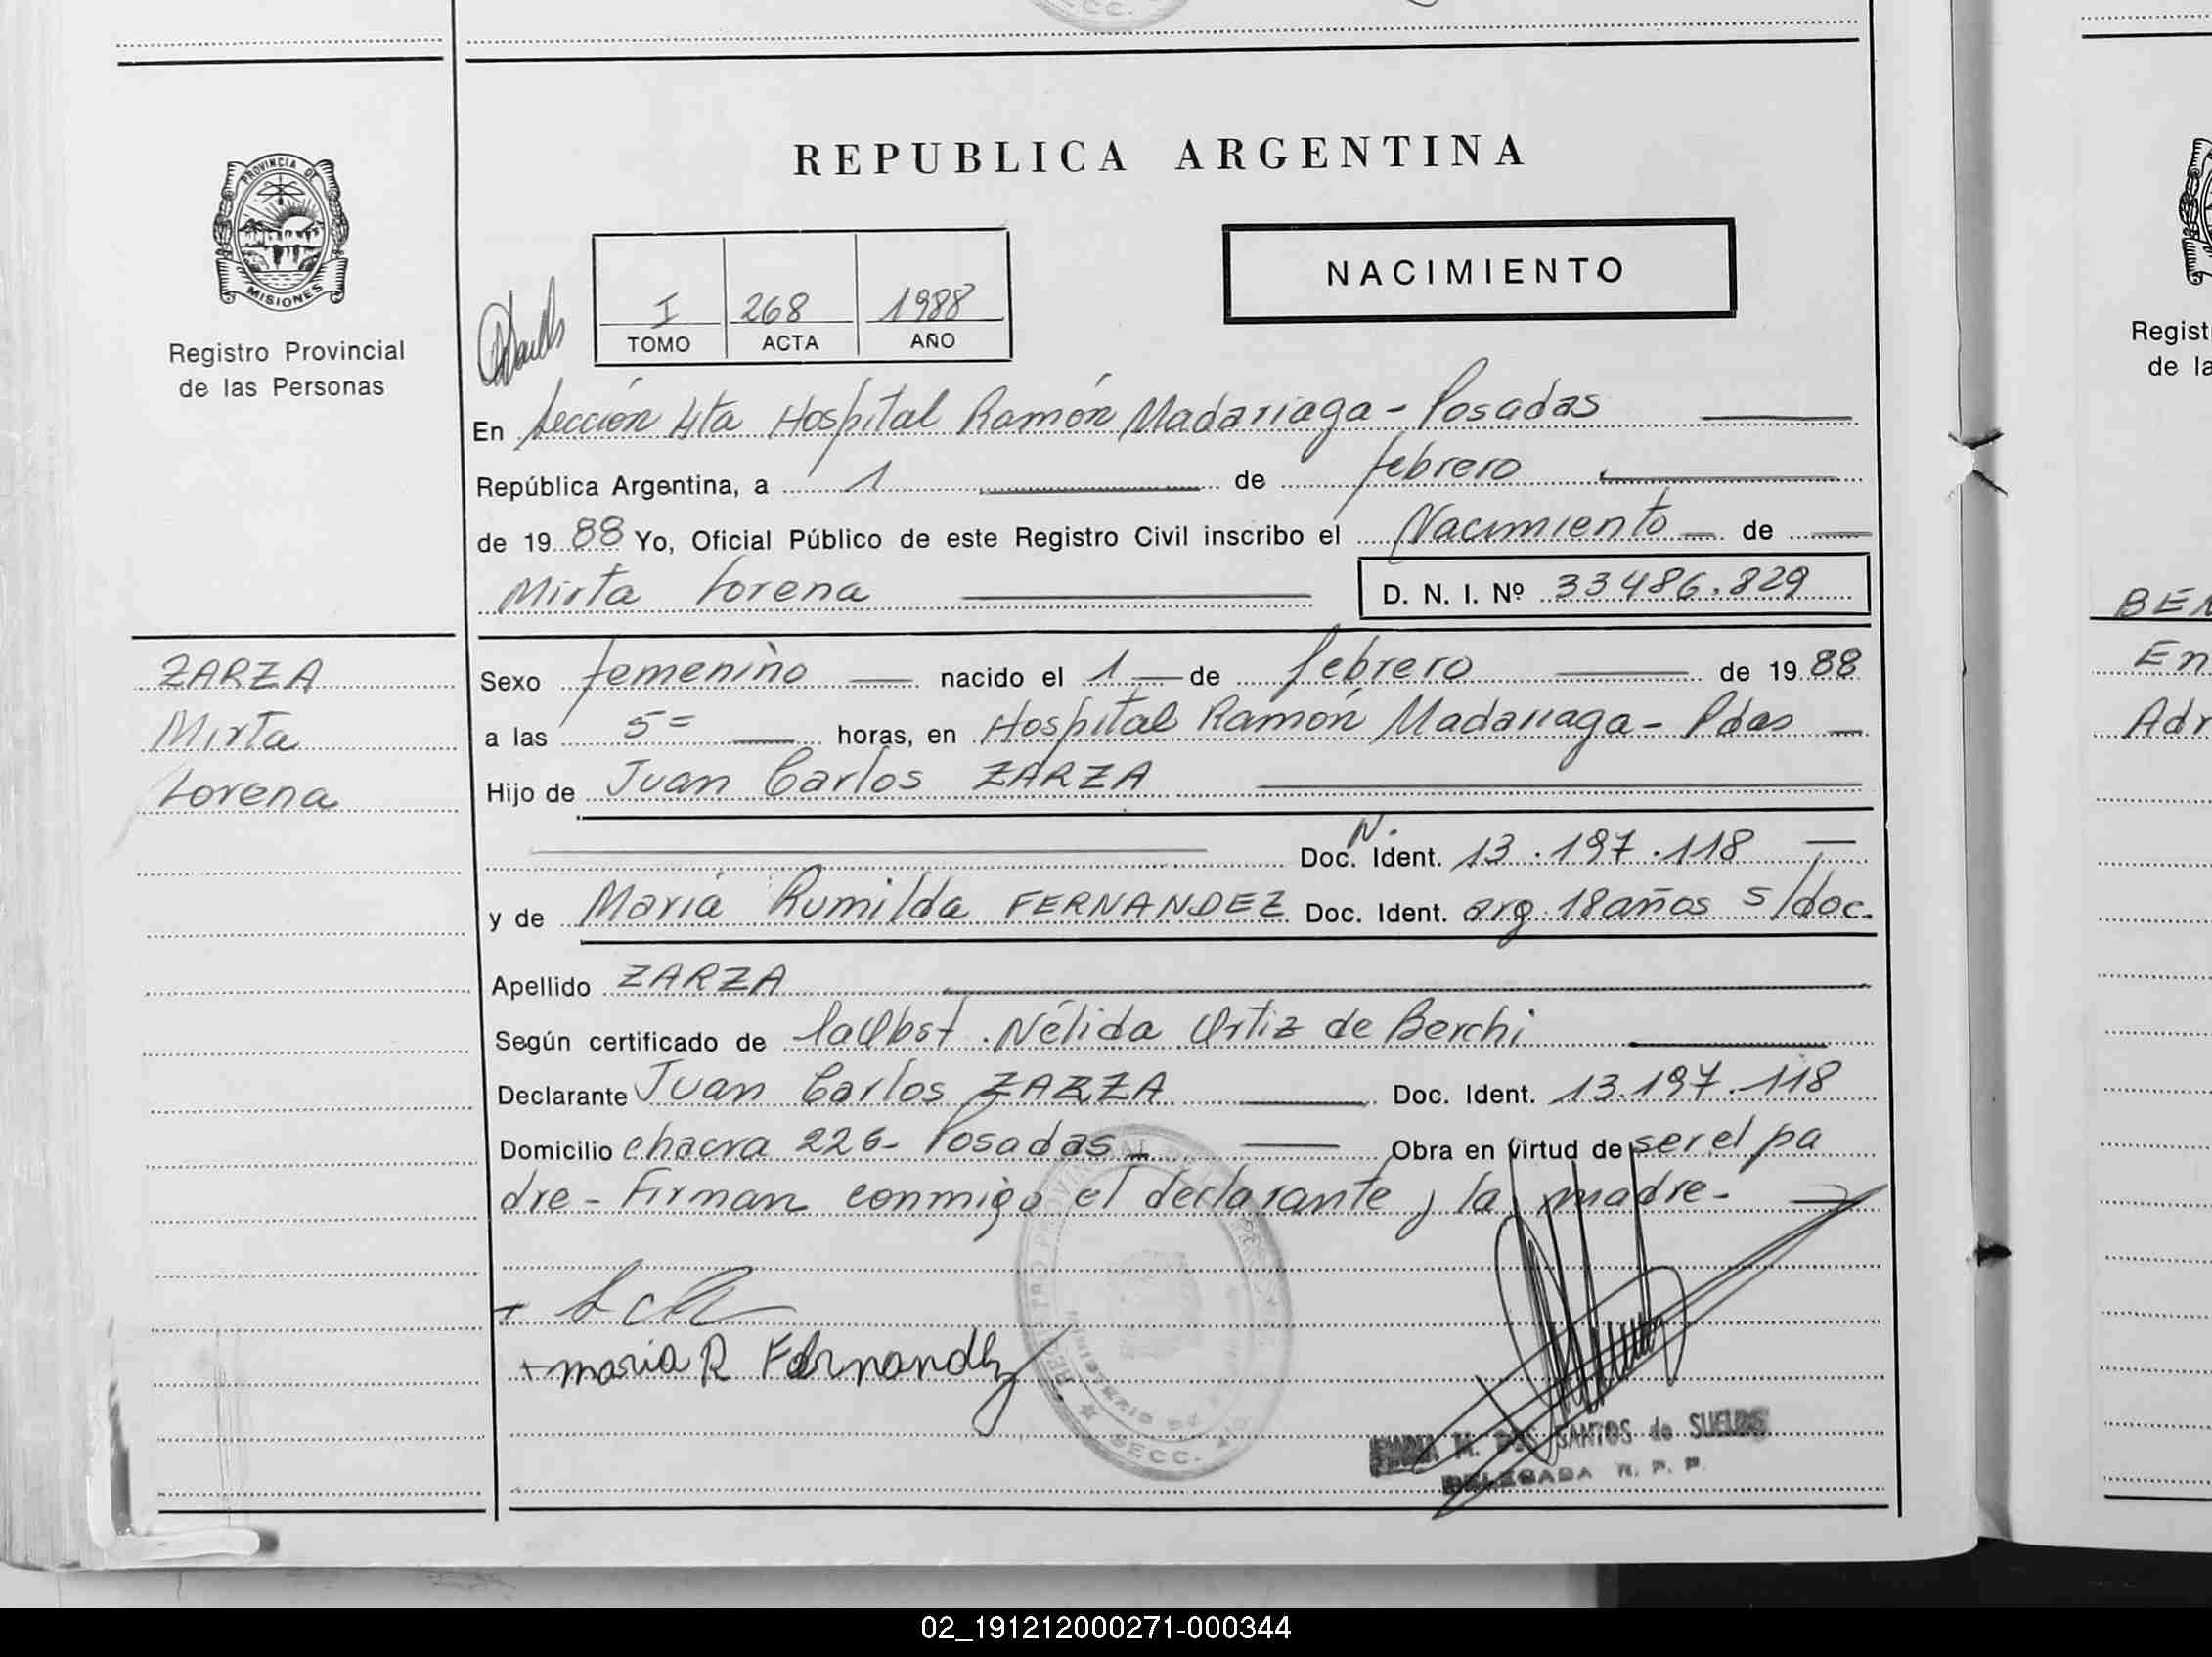 REPUBLICA ARGENTINA
PROVINCIA DE
MISIONES
Registro Provincial
de las Personas
I 268 1988
TOMO ACTA AÑO
NACIMIENTO
En Sección 4ta Hospital Ramón Madariaga - Posadas
República Argentina, a 1 de febrero
de 1988 Yo, Oficial Público de este Registro Civil inscribo el Nacimiento de
Mirta Lorena D. N. I. Nº 33486.829
ZARZA
Mirta
Lorena
Sexo femenino nacido el 1 de febrero de 1988
a las 5= horas, en Hospital Ramón Madariaga - Pdas
Hijo de Juan Carlos ZARZA
N.
Doc. Ident. 13.197.118
y de María Rumilda FERNANDEZ Doc. Ident. arg. 18 años s/doc.
Apellido ZARZA
Según certificado de la Obst. Nélida Ortiz de Berchi
Declarante Juan Carlos ZARZA Doc. Ident. 13.197.118
Domicilio chacra 226 - Posadas Obra en virtud de ser el pa
dre - Firman conmigo el declarante y la madre -
+ maria R Fernandez
SECC.
M. DOS SANTOS de SUELDO
DELEGADA R. P. P.
Regist
de la
BEN
En
Adr
02_191212000271-000344